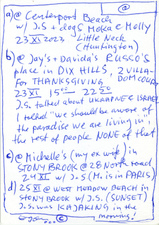 a) @ Centerport Beach
w/ J.S + dogs Moka & Molly
23 XI 2023 Little Neck
(Huntington)
b) @ Jay's + Davida's RUSSO'S
place in DIX HILLS, 2 VILLA-
FOR THANKSGIVING DOM COURT
23 XI 15 22
J.S. talked about UKRAINE & ISRAEL
I talked "we should be aware of
the paradise we are living in"
the rest of people NONE of that
c) @ Michelle's (my ex wife) in
STONY BROOK @ 28 North road
24 XI w/ J.S. (M. is in PARIS)
d) 25 XI @ WEST MEADOW BEACH in
STONY BROOK w/ J.S. (SUNSET)
J.S. was KAJAKING in the
morning!